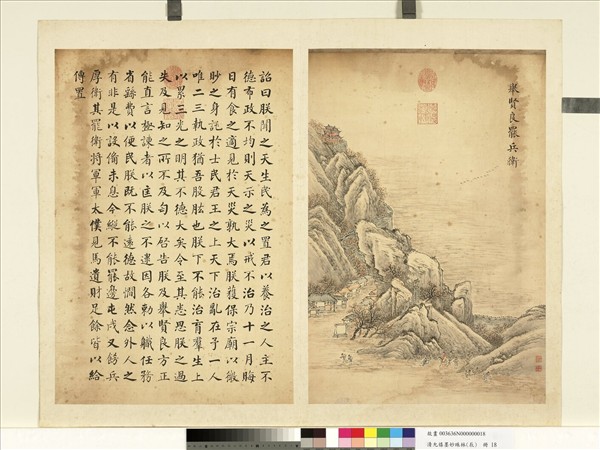 舉賢良罷兵衛
詔曰朕聞之天生民為之置君以養治之人主不
德布政不均則天示之災以戒不治乃十一月晦
日有食之適見於天災孰大焉朕獲保宗廟以微
眇之身託於士民君王之上天下治亂在予一人
唯二三執政猶吾股肱也朕下不能治育羣生上
以累三光之明其不德大矣令至其悉思朕之過
失及見知之所不及匄以啓告朕及舉賢良方正
能直言極諫者以匡朕之不逮因各勅以職任務
省繇費以便民朕既不能遠德故憪然念外人之
有非是以設備未息今縱不能罷邊屯戍又飭兵
厚衛其罷衛將軍軍太僕見馬遺財足餘皆以給
傳置
故畫 003636N000000018
冊 18